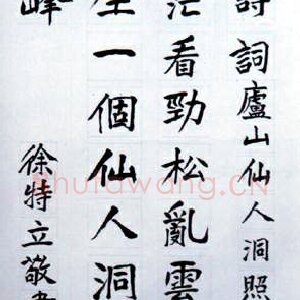 詩詞廬山仙人洞照
茫看勁松亂雲
生一個仙人洞
峰
徐特立敬書
Shufawang.CN